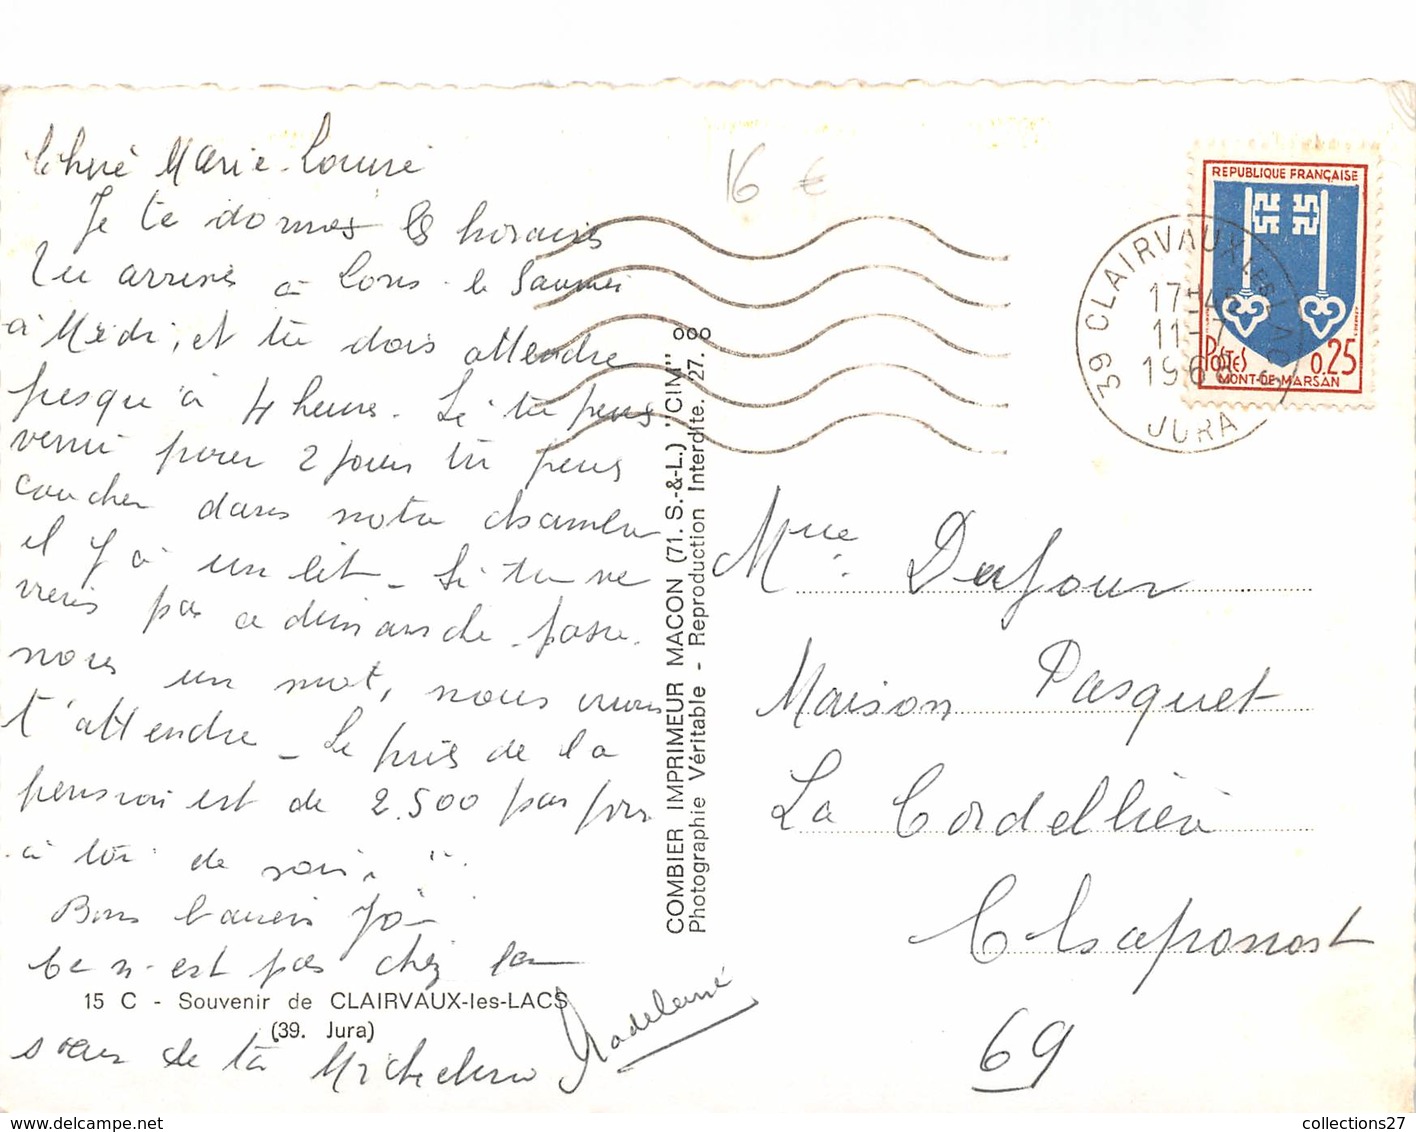 Chère Marie-Louise
Je te donnes les horaires
Tu arrives à Lons-le Saunier
à Midi, et tu dois attendre
jusqu'à 4 heures. Si tu peus
venir pour 2 jours tu peus
coucher dans notre chambre
il y a un lit - Si tu ne
viens pas ce dimanche, passe
nous un mot, nous
t'attendre - Le prix de la
pension est de 2.500 par jour
à toi de voir.
Bons baisers
Ce n'est pas chez la
sœur de ta Micheline
Madeleine
15 C - Souvenir de CLAIRVAUX-les-LACS
(39. Jura)
COMBIER IMPRIMEUR MACON (71. S.-&-L.) "CIM"
Photographie Véritable - Reproduction Interdite. 27. ooo
16 €
39 CLAIRVAUX LES LACS
17H45
11-7
1968
JURA
REPUBLIQUE FRANÇAISE
POSTES
0.25
MONT-DE-MARSAN
Mlle Dufour
Maison Pasquet
La Cordellière
Chaponost
69
collections27